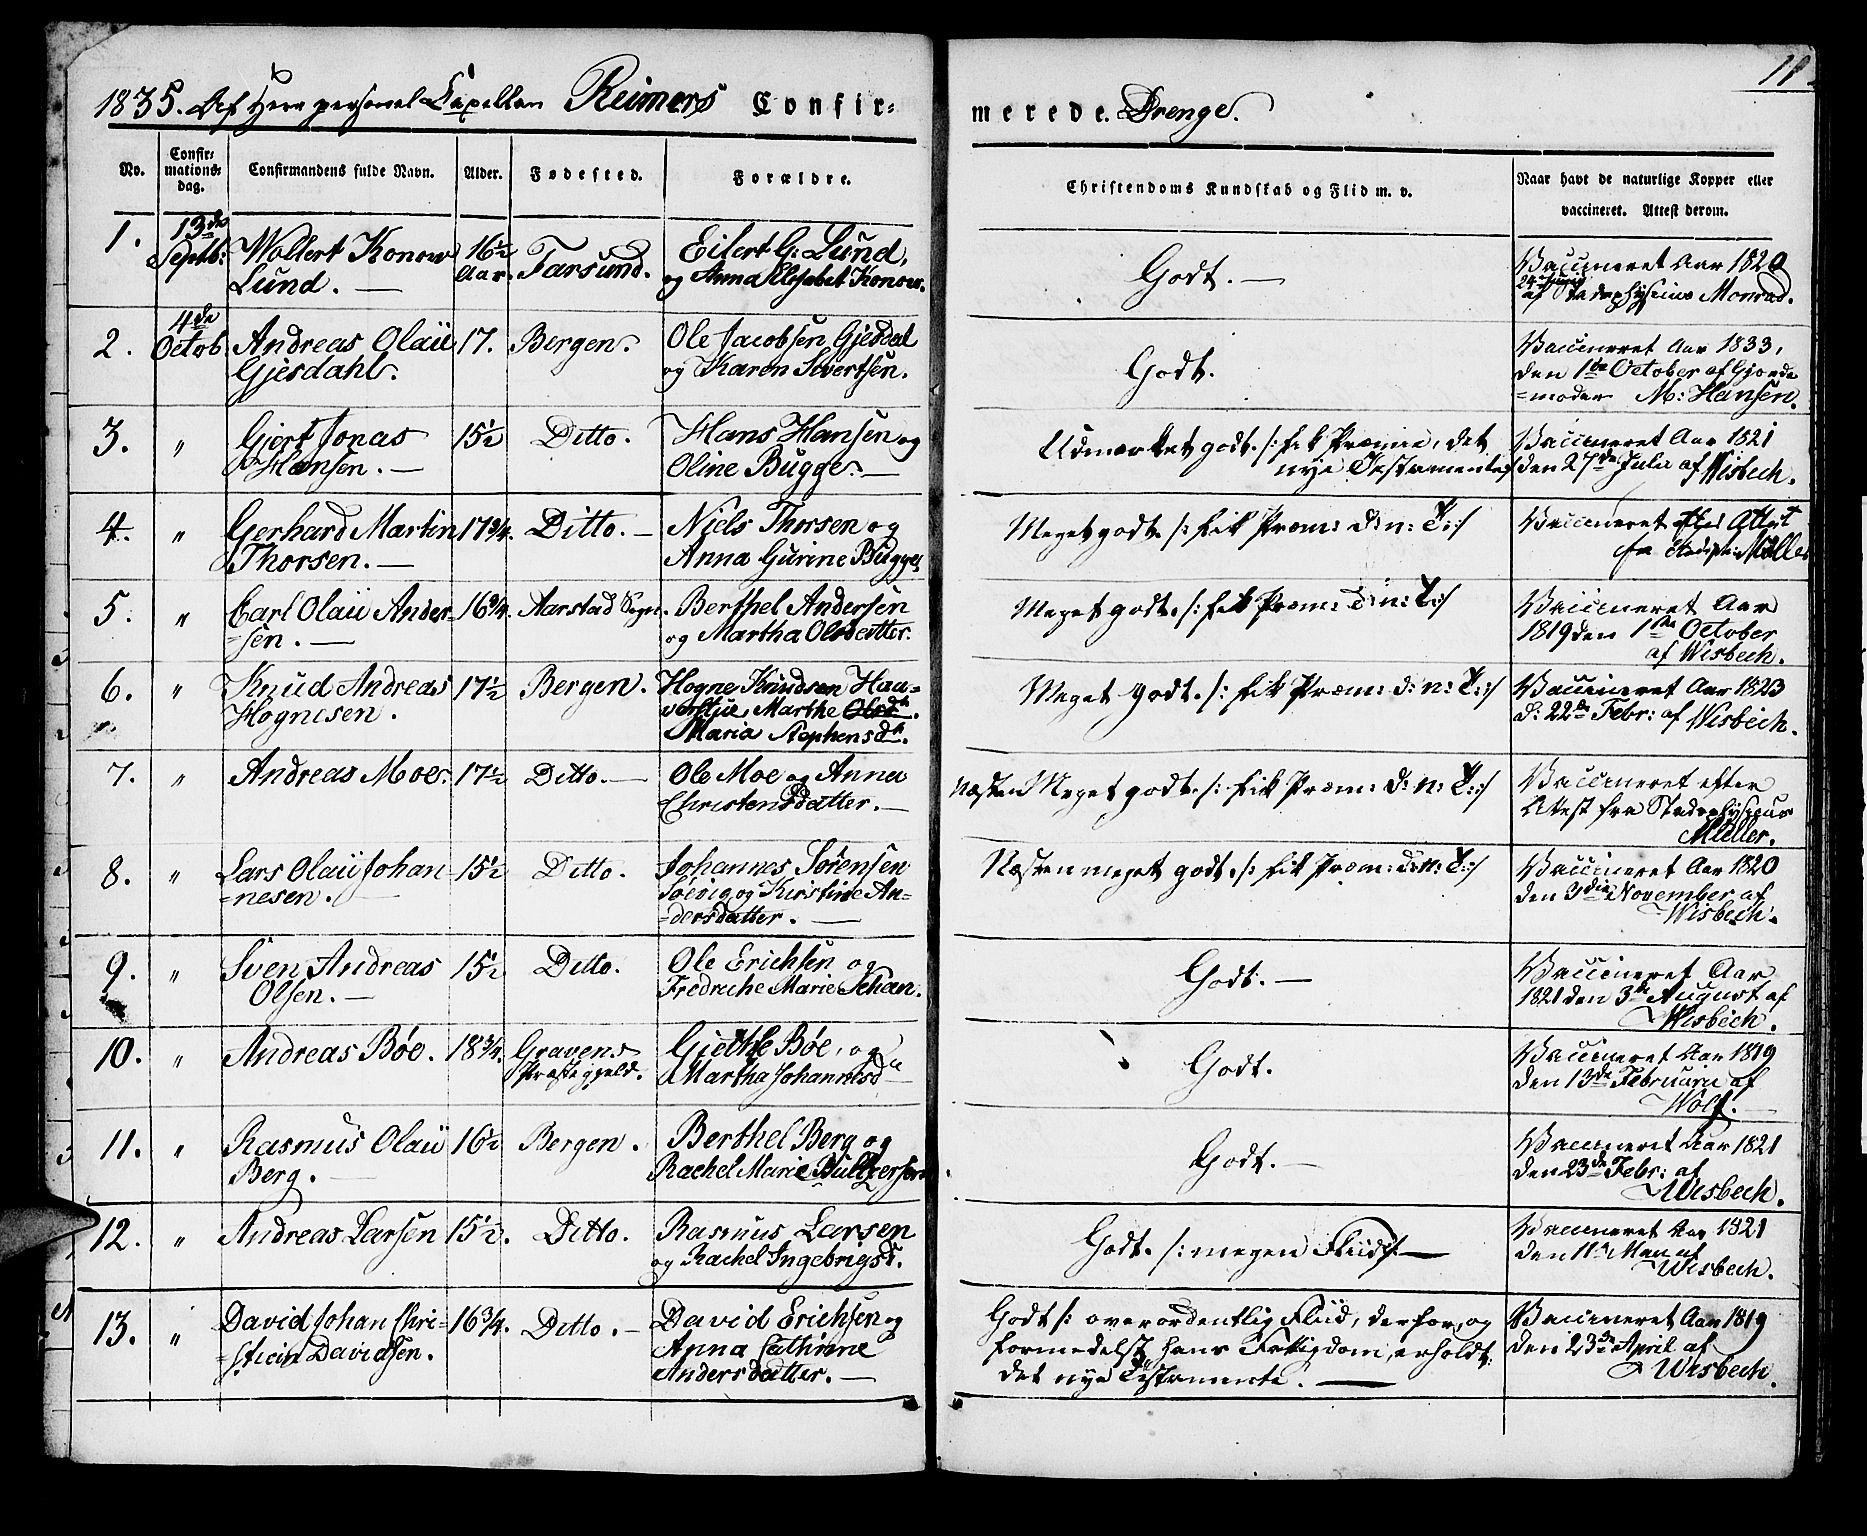 11
1835. Af Herr personel Capellan Reimers Confir= merede Drenge.
No. Confir= mations= dag. Confirmandens fulde Navn. Alder. Fødested. Forældre. Christendoms Kundskab og Flid m. v. Naar havt de naturlige Kopper eller vaccineret. Attest derom.
1. 13de Septb: Wollert Konow Lund. — 16½ Aar. Farsund. Eilert G: Lund, og Anna Elisabet Konow. Godt. — Vaccineret Aar 1820 af Stadsphysicus Monrad.
2. 4de Octob. Andreas Olaii Gjesdahl. 17. Bergen. Ole Jacobsen Gjesdal og Karen Sivertsen. Godt. Vaccineret Aar 1833, den 1ste October af Gjorde =moder M: Hansen.
3. " Gjert Jonas Hansen. — 15½ Ditto. Hans Hansen og Oline Bugge. — Udmærket godt. /: fik Præmie, det nye Testamente Vaccineret Aar 1821 den 27de Julii af Wisbech.
4. " Gerhard Martin Thorsen. — 17¾. Ditto. — Niels Thorsen og Anna Gurine Bugge. Meget godt. /: fik Præm: d: n: T: :/ Vaccineret efter Attest fra Møller
5. " Carl Olaii Ander= =sen. — 16¾. Aarstad Sogn. Berthel Andersen og Martha Olsdatter. Meget godt. /: fik Præm: d: n: T: :/ Vaccineret Aar 1819 den 1ste October af Wisbech.
6. " Knud Andreas Hognesen. 17½ Bergen. Hogne Knudsen Hau= Marthe Olsdr. Maria Stephensdr. Meget godt. /: fik Præm: d: n: T: :/ Vaccineret Aar 1823 d: 22de Febr: af Wisbech.
7. " Andreas Moe. 17½ Ditto. — Ole Moe og Anna Christensdatter. — Næsten Meget godt. /: fik Præm: d: n: T: :/ Vaccineret efter Attest fra Stadsphysicus Müller.
8. " Lars Olaii Johan= =nesen. — 15½ Ditto. Johannes Sørensen Soevig og Kirstine An= =dersdatter. — Næsten meget godt. /: fik Præm: d: n: T: :/ Vaccineret Aar 1820 den 3die November af Wisbech.
9. " Sven Andreas Olsen. — 15½ Ditto. Ole Erichsen og Fredriche Marie Schan. Godt. — Vaccineret Aar 1821 den 3de August af Wisbech.
10. " Andreas Bøe. 18¾. Gravens Præstegjeld. Giethle Bøe, og Martha Johannesd Godt. Vaccineret Aar 1819 den 13de Februarii af Wolf. —
11. " Rasmus Olaii Berg. — 16½ Bergen. Berthel Berg og Rachel Marie Godt. — Vaccineret Aar 1821 den 23de Febr: af Wisbech.
12. " Andreas Larsen 15½. Ditto. Rasmus Larsen og Rachel Ingebrigsd. Godt. /: megen Fliid :/ — Vaccineret Aar 1821 den 11te Mai af Wisbech.
13. " David Johan Chri= =stian Davidsen. 16¾. Ditto. — David Erichsen og Anna Cathrine Andersdatter. — Godt /: overordentlig Fliid, derfor, og formedelst hans Fattigdom, erholdt: det nye Testamente. — Vaccineret Aar 1819 den 23de April af Wisbech.